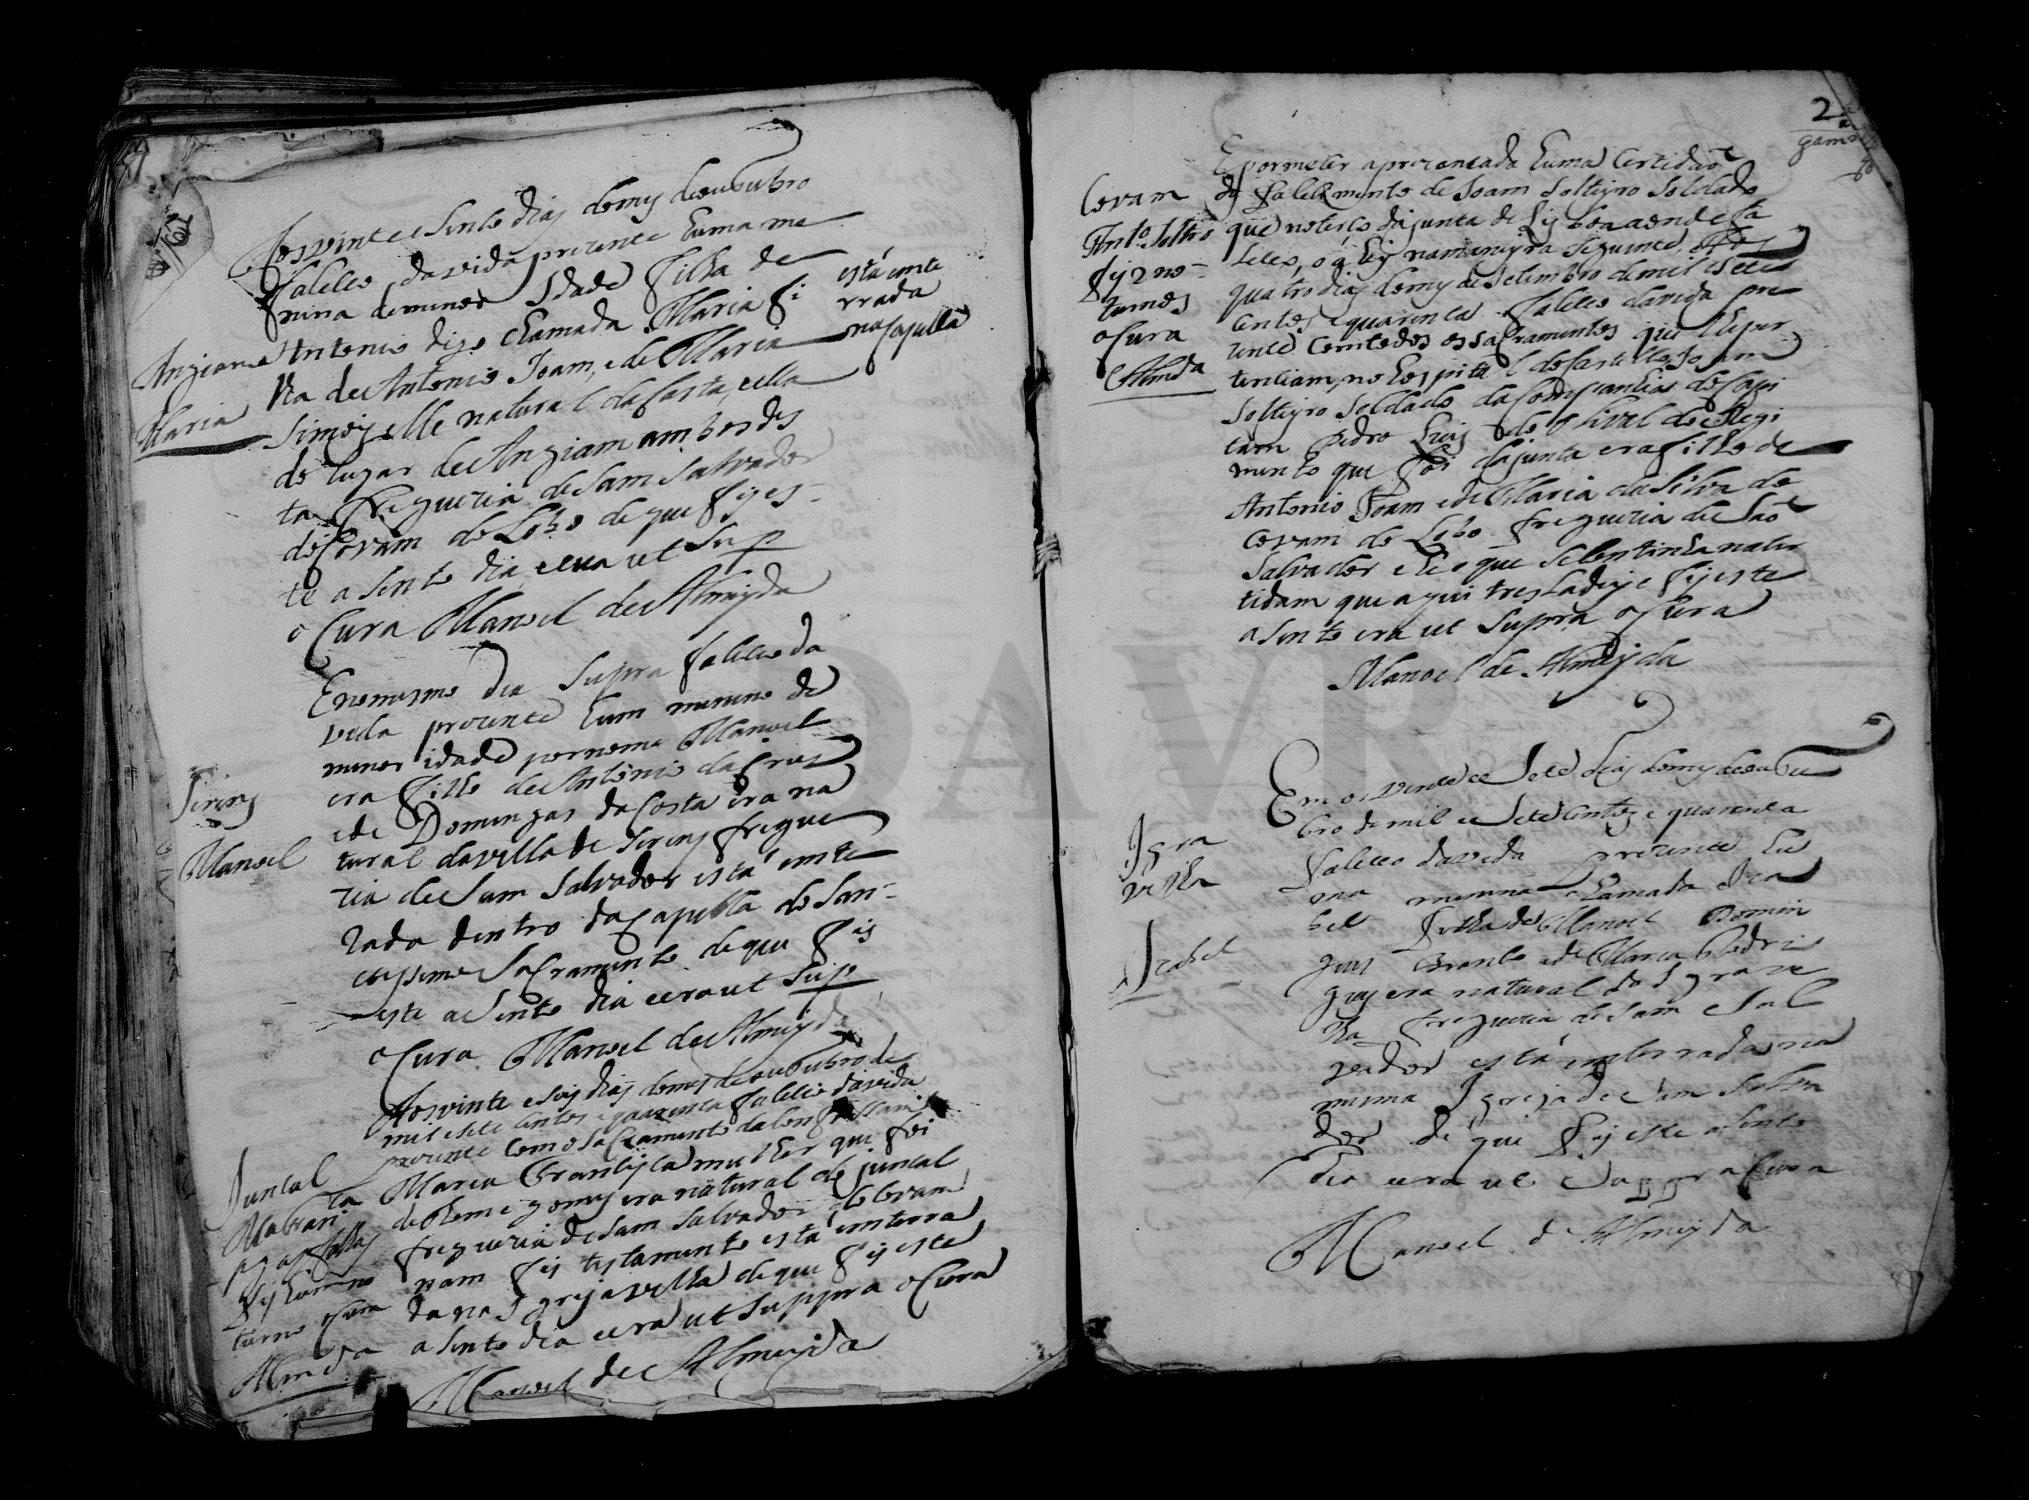 Aos vinte e sinto dias do mes de outubro
faleceo da vida prezente huma me
nina de menor Idade filha de
Antonio digo chamada Maria fi
lha de Antonio Joam, e de Maria
Simois elle natural da Costa, e ella
do lugar de Anziam ambos des
ta freguezia de Sam Salvador
de Covam do Lobo de que fis es
te asento dia e era ut Sup
o Cura Manoel de Almeyda
está ente
rrada
na Capella
Anziam
Maria
E no mesmo dia Supra faleceo da
vida prezente hum menino de
menor idade por nome Manoel
era filho de Antonio da Crus
e de Domingas da Costa era na
tural da villa de Sorens fregue
zia de Sam Salvador está ente
rado dentro da Capella do San
tissimo Sacramento de que fis
este asento dia e era ut Sup
o Cura Manoel de Almeyda
Manoel
Aos vinte e seis dias do mes de outubro de
mil e sete centos e quarenta faleceo da vida
prezente com o Sacramento da
Maria Francisca mulher que foi
de gomes era natural de juncal
freguezia de Sam Salvador de Covam
nam fes testamento está enterra
da na Igreja velha de que fis este
asento dia e era ut Suppra o Cura
Manoel de Almeyda
Juncal
Maria
fis hum no
turno o Cura
Almeida
2
gama
E por me ser aprezentada huma Certidão
do falecimento de Joam Solteyro Soldado
que no terso da junta de Lisboa aonde fa
leceo, o q fis na maneyra seguinte. Aos
quatro dias do mes de Setembro de mil e sete
centos e quarenta faleceo da vida pre
zente com todos os sacramentos que lhe per
tenciam, no hospital do Castello Joam
Solteyro Soldado da Companhia do Capi
tam Pedro Luis do Regi
mento que foi da junta era filho de
Antonio Joam e de Maria da Silva de
Covam do Lobo freguezia de São
Salvador e he o que se continha na ser
tidam que aqui tresladey e fis este
asento era ut Supra o Cura
Manoel de Almeyda
Covam
Ant.o Soltro
fis 2 no
turnos
o Cura
Almda
Em os vinte e Sete dias do mes de outu
bro de mil e Sete centos e quarenta
faleceo da vida prezente hu
ma menina chamada Iza
bel filha de Manoel Domin
gues Branco e de Maria Rodri
gues era natural da Igra ve
lha freguezia de Sam Sal
vador está enterrada na
mesma Igreja de Sam Salva
dor de que fis este asento
dia e era ut Suppra o Cura
Manoel de Almeyda
Igra
velha
Izabel
ADAVR